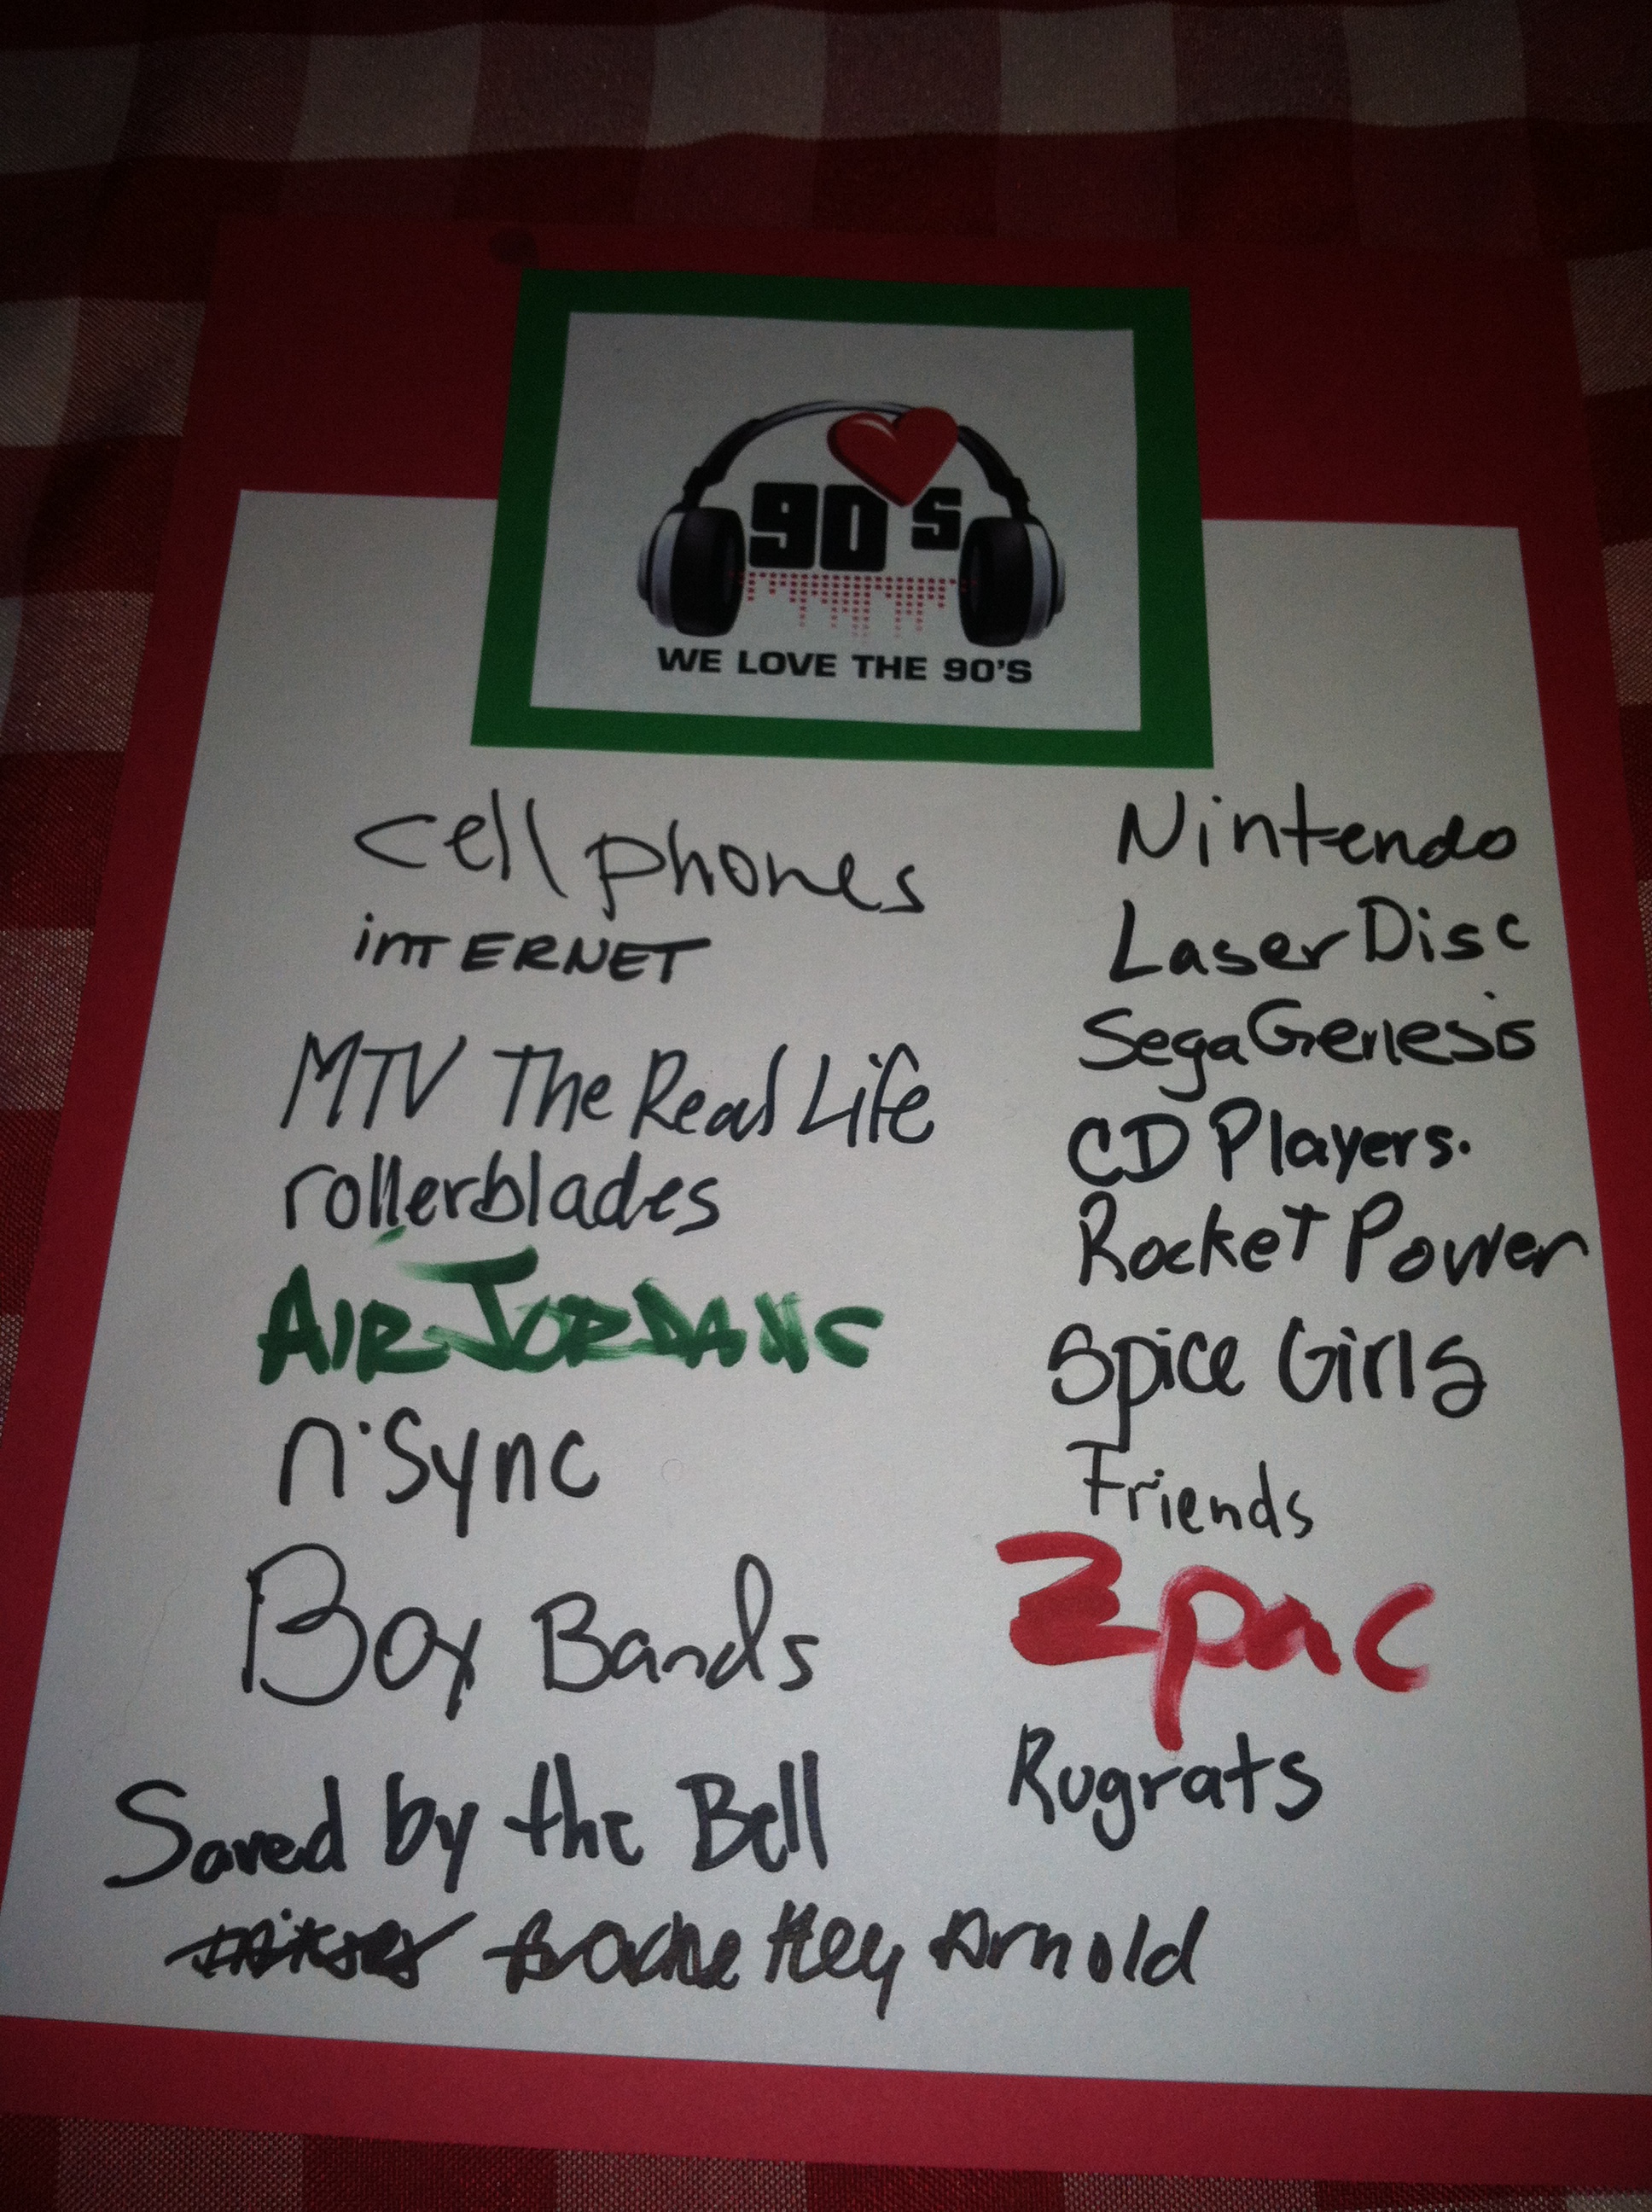 90's
WE LOVE THE 90'S
cell phones
intERNET
MTV The Real Life
rollerblades
AIR JORDANS
n'Sync
Boy Bands
Saved by the Bell
Hey Arnold
Nintendo
Laser Disc
Sega Genesis
CD Players.
Rocket Power
Spice Girls
Friends
2pac
Rugrats